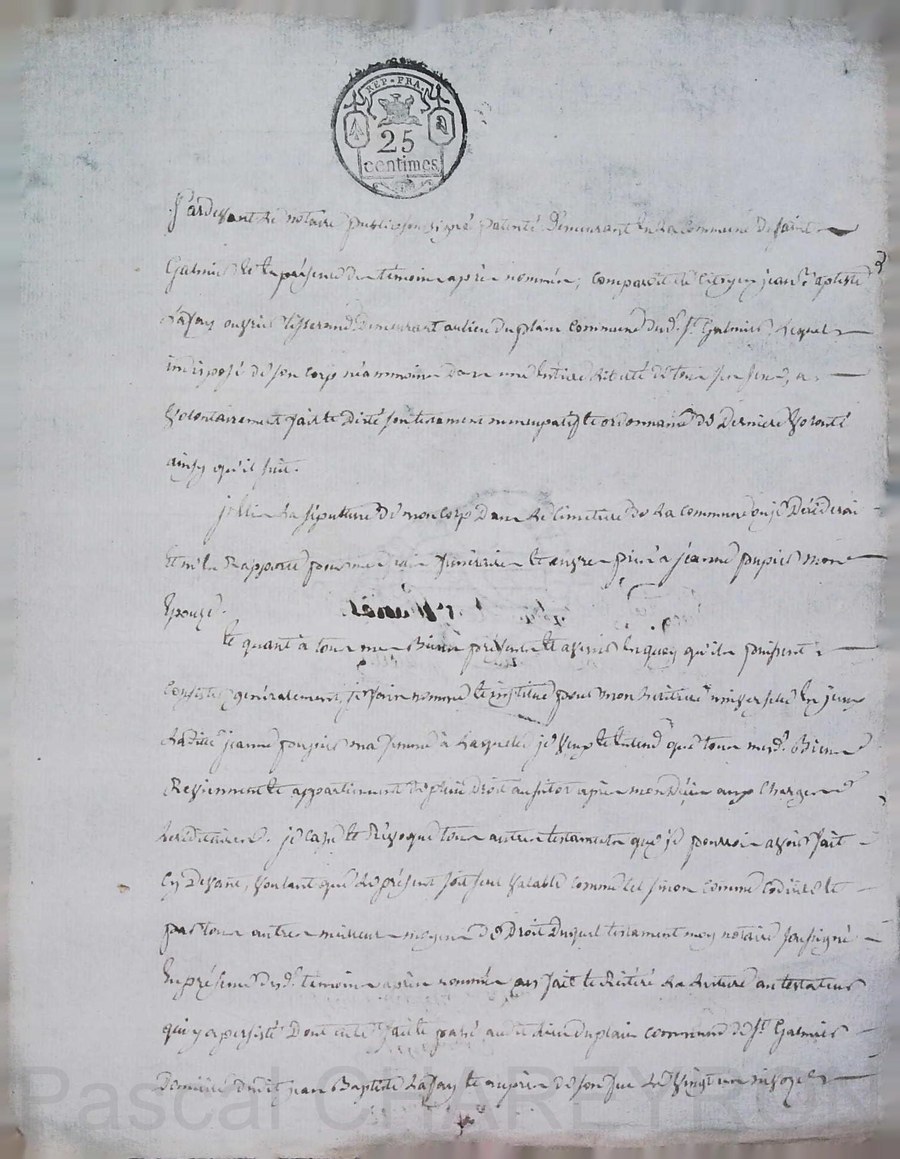 REP. FRA.
25
centimes
Pardevant le notaire public soussigné patenté demeurant en la commune de saint
Galmier et en présence des témoins après nommés, comparoît le citoyen jean Baptiste
Lafay ouvrier tisserand demeurant au lieu du plain commune dud. St. Galmier Lequel
indisposé de son corps néammoins dans une entière liberté de tous ses sens, a
volontairement fait et dicté son testament nuncupatif et ordonnance de dernière volonté
ainsy qu'il suit.
j'ellis la sépulture de mon corp dans le cimetière de la commune ou je décéderai
et m'en rapporte pour mes frais funéraires et œuvres pies a jeanne pupier mon
épouze.
et quant à tous mes Biens présents et avenir en quoy qu'ils puissent
consister généralement, je fais nomme et institue pour mon héritière universelle
ladite jeanne pupier ma femme à laquelle je veux et entend que tous mesd. Biens
Reviennent et appartiennent de plein droit aussitot après mon décès aux charges
héréditaires. je casse et révoque tous autres testaments que je pourrois avoir fait
cy devant, voulant que le présent soit seul valable comme tel sinon comme codicile et
par tous autres meilleurs moyens de droit duquel testament moy notaire soussigné
en présence desd. témoins après nommés ay fait et réitéré la lecture au testateur
qui y a persisté Dont acte fait et passé audit lieu du plain commune de St. Galmier
Domicile dudit jean Baptiste Lafay et auprès de son feu le vingt un nivoze
Pascal CHAREYRON